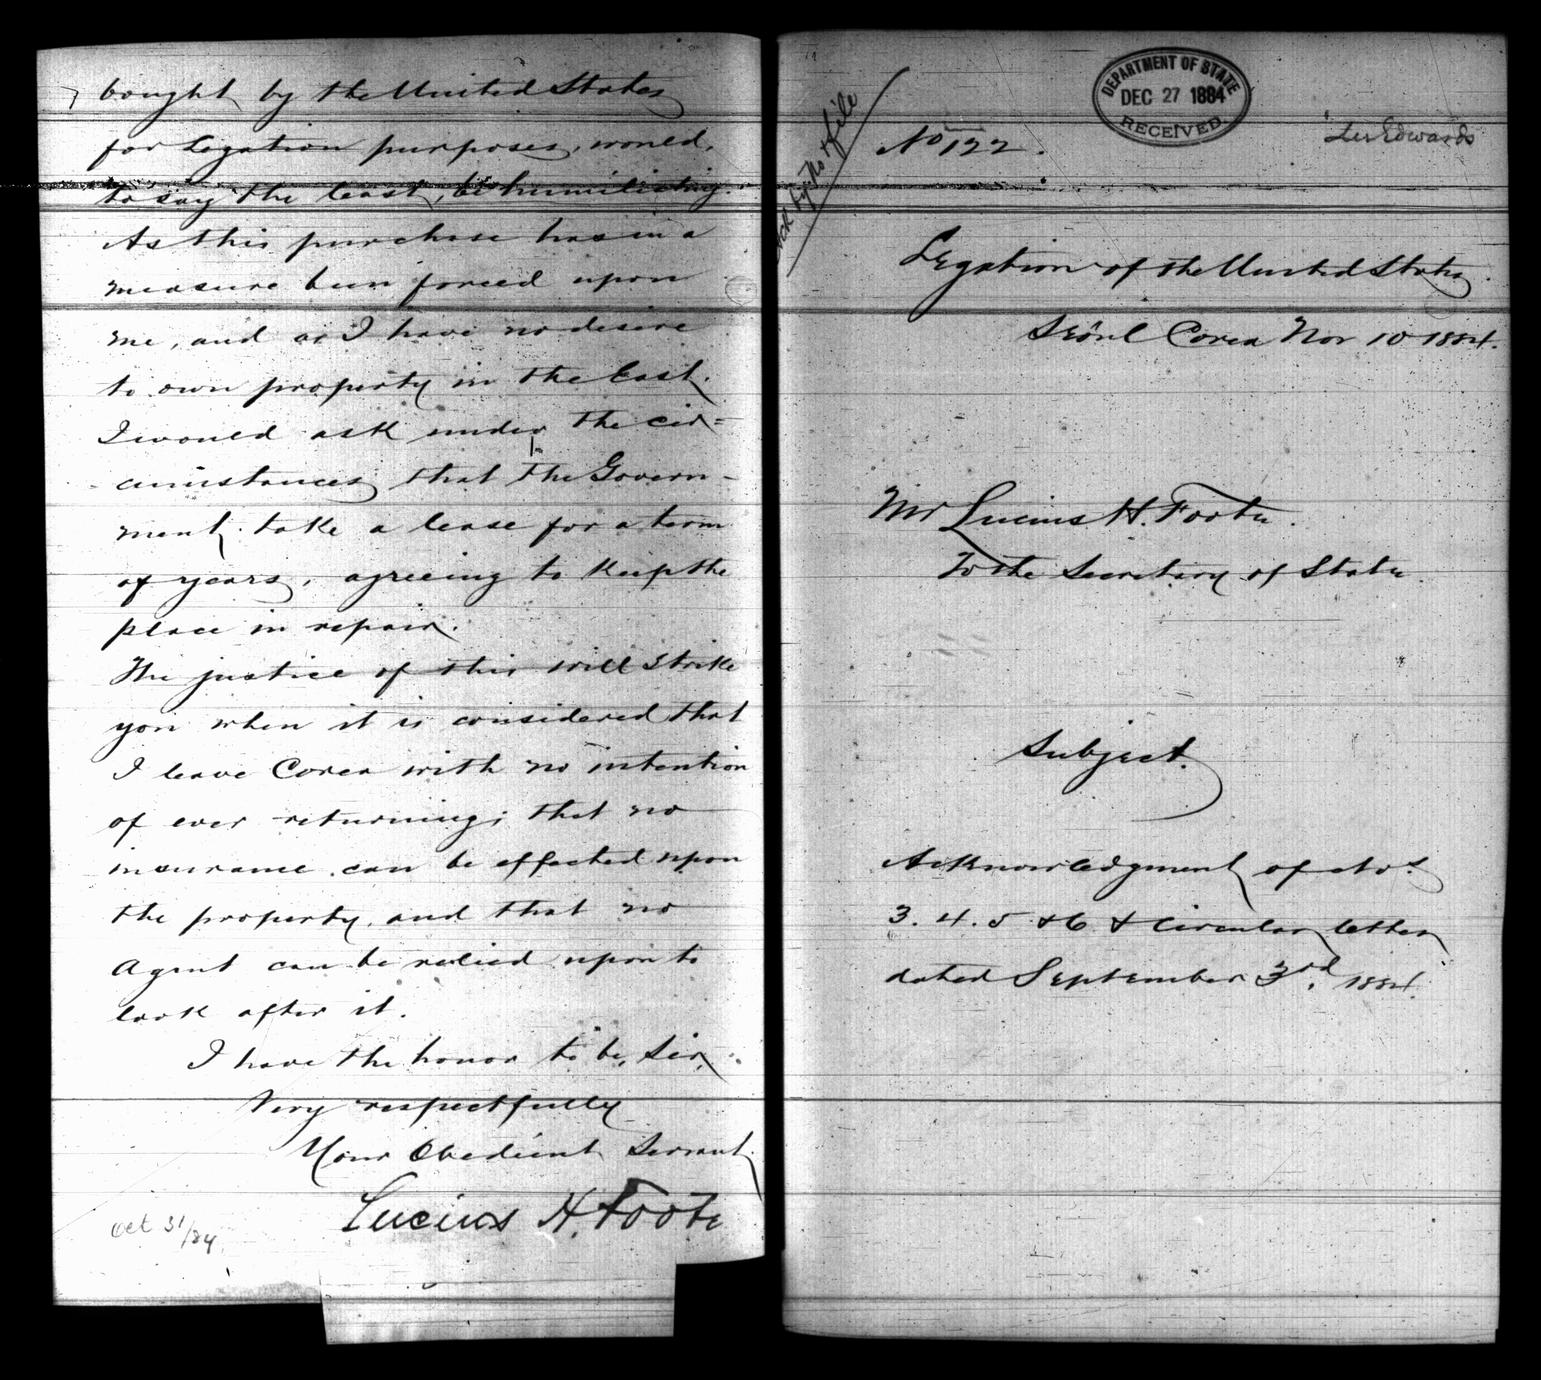 bought by the United States
for Legation purposes, would,
to say the least, be humiliating.
As this purchase has in a
measure been forced upon
me, and as I have no desire
to own property in the East.
I would ask under the cir=
cumstances that the Govern-
ment take a lease for a term
of years, agreeing to keep the
place in repair.
The justice of this will strike
you when it is considered that
I leave Corea with no intention
of ever returning; that no
insurance can be effected upon
the property, and that no
Agent can be relied upon to
look after it.
I have the honor to be, Sir,
Very respectfully
Your Obedient Servant
Lucius H. Foote
Oct 31/84
DEPARTMENT OF STATE
DEC 27 1884
RECEIVED.
No 122.
Edwards
file
Legation of the United States.
Seoul Corea Nov 10 1884.
Mr Lucius H. Foote.
To the Secretary of State
Subject.
Acknowledgment of Nos
3. 4. 5 & 6 & Circular letter
dated September 3rd, 1884.